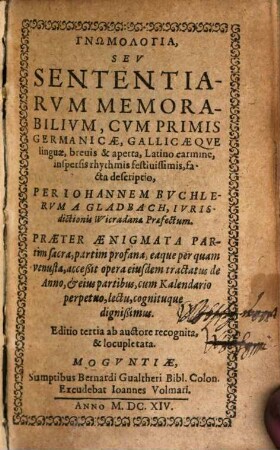 ΓΝΩΜΟΛΟΓΙΑ,
SEV
SENTENTIA-
RVM MEMORA-
BILIVM, CVM PRIMIS
GERMANICÆ, GALLICÆQVE
linguæ, breuis & aperta, Latino carmine,
inspersis rhythmis festiuissimis, fa-
cta descriptio,
PER IOHANNEM BVCHLE-
RVM A GLADBACH, IVRIS-
dictionis Wicradanæ Præfectum.
PRÆTER ÆNIGMATA PAR-
tim sacra, partim profana, eaque per quam
venusta, accessit opera eiusdem tractatus de
Anno, & eius partibus, cum Kalendario
perpetuo, lectu, cognituque
dignissimus.
Editio tertia ab auctore recognita,
& locupletata.
MOGVNTIÆ,
Sumptibus Bernardi Gualtheri Bibl. Colon.
Excudebat Ioannes Volmari.
ANNO M. DC. XIV.